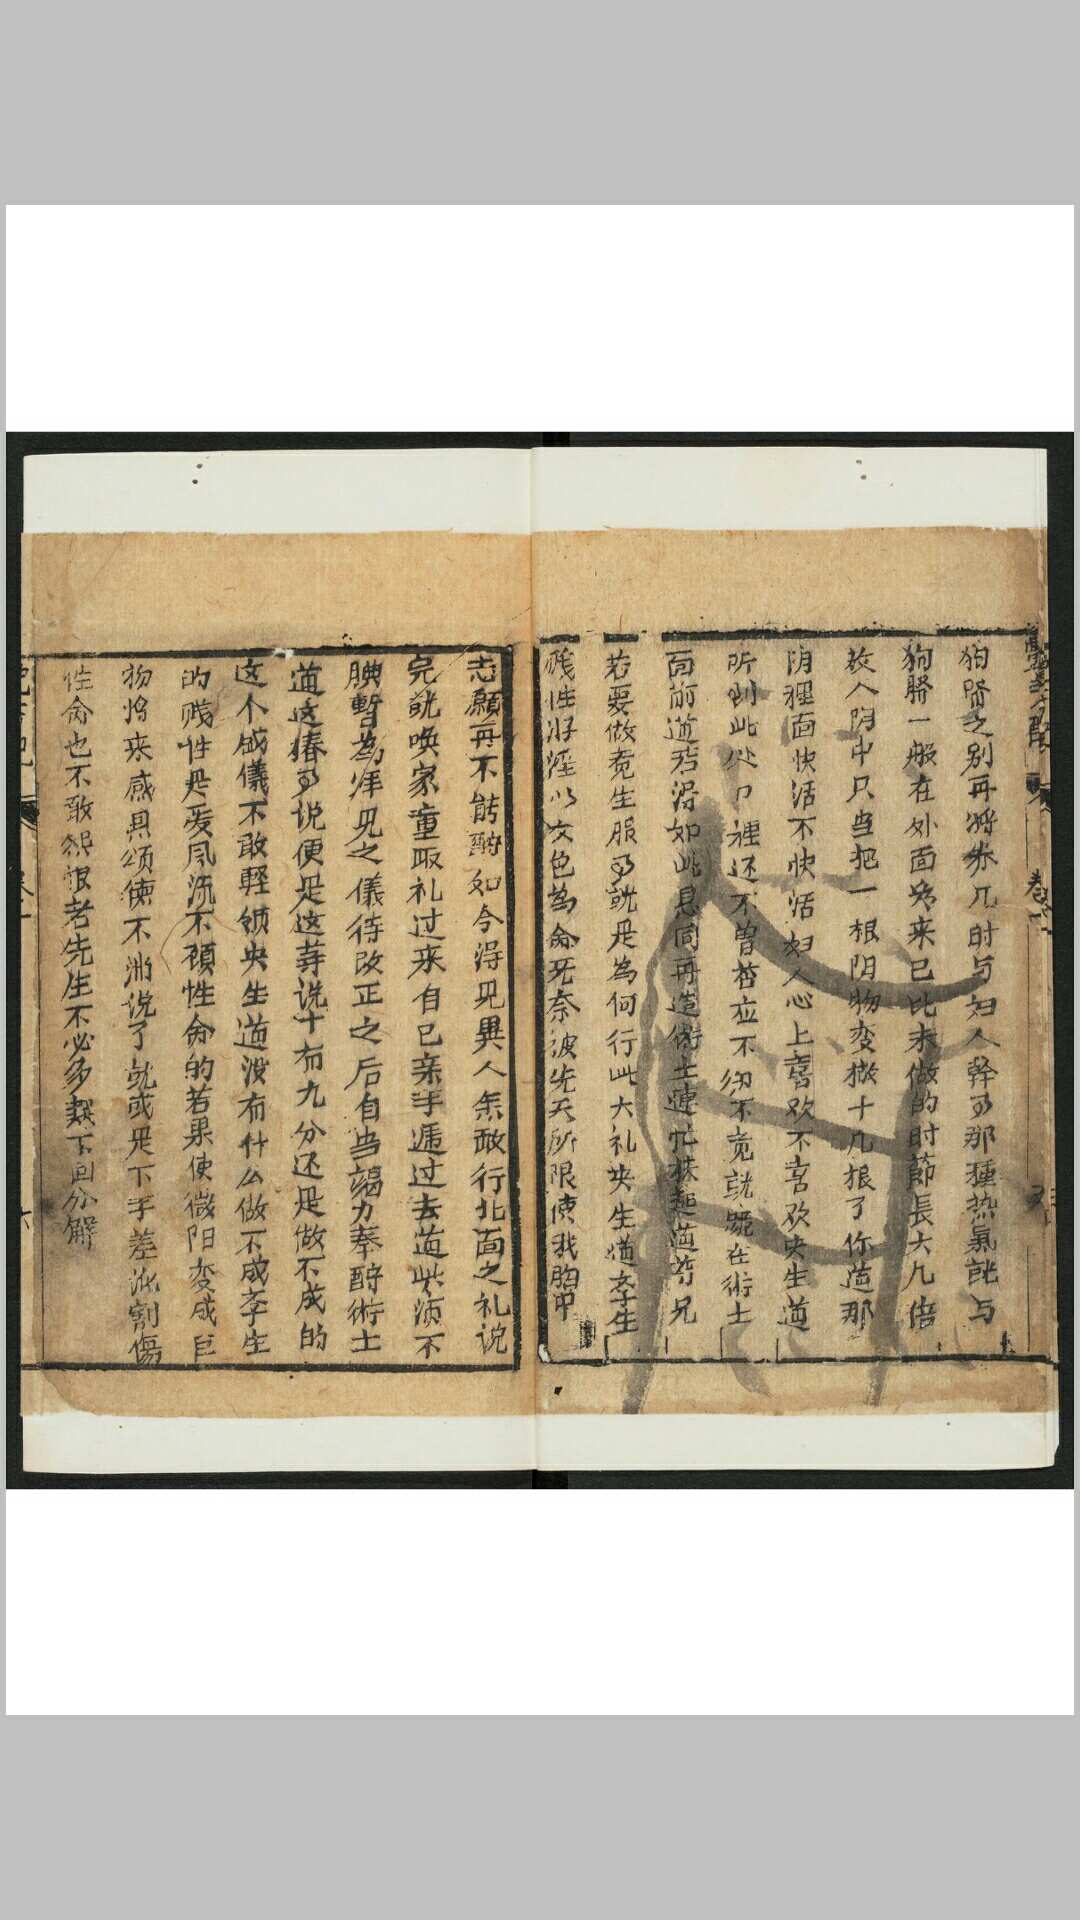 狗腎之別再將來几时与妇人幹事那種热氣就与
狗腎一般在外面看来已比未做的时節長大几倍
放入阴中只当把一根阴物变做十几根了你道那
阴裡面快活不快活妇人心上喜欢不喜欢央生道
所到此处口裡还不曾荅应不知不竟就跪在術士
面前道若得如此恩同再造術士連忙扶起道尊兄
若要做竟生服事就是為何行此大礼央生道李生
残性好淫以女色為命死奈彼先天所限使我胸中
志願再不能酹如今得见異人焉敢行北面之礼说
完就唤家童取礼过来自己亲手遞过去道些须不
腆暫為贽见之儀待改正之后自当竭力奉酹術士
道这椿事说便是这等说十有九分还是做不成的
这个盛儀不敢輕领央生道没有什么做不成李生
的贱性是爱風流不顧性命的若果使微阳变成巨
物將来感具颂使不消说了就或是下手差池割傷
性命也不敢怨恨老先生不必多疑下回分解
卷一